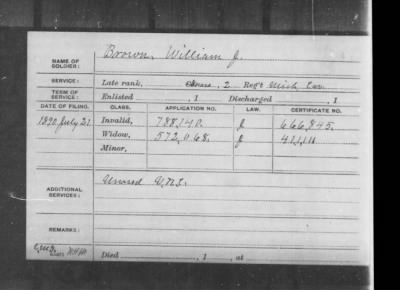 NAME OF SOLDIER: Brown, William J.
SERVICE: Late rank, 2 Reg't Mich Cav.
TERM OF SERVICE: Enlisted , 1 Discharged , 1
DATE OF FILING. CLASS. APPLICATION NO. LAW. CERTIFICATE NO.
1890 July 21 Invalid, 788,140. J 666,845.
Widow, 572,068. J
Minor,
ADDITIONAL SERVICES:
REMARKS:
Died , 1 , at